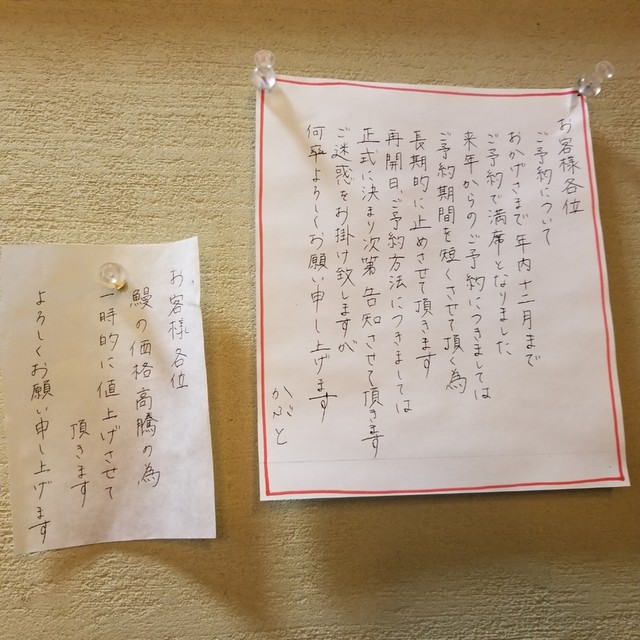 お客様各位
ご予約について
おかげさまで年内十二月まで
ご予約で満席となりました
来年からのご予約につきましては
ご予約期間を短くさせて頂く為
長期的に止めさせて頂きます
再開日、ご予約方法につきましては
正式に決まり次第告知させて頂きます
ご迷惑をお掛け致しますが
何卒よろしくお願い申し上げます
かぶと
お客様各位
鰻の価格高騰の為
一時的に値上げさせて
頂きます
よろしくお願い申し上げます